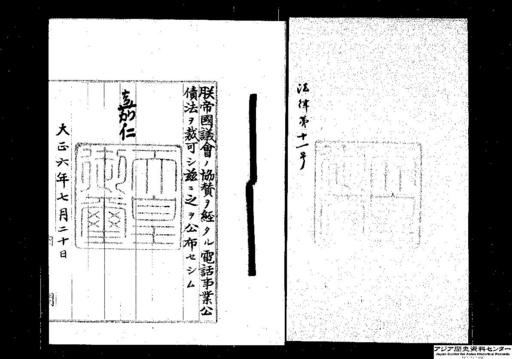 法律第十一号
朕帝國議會ノ協賛ヲ經タル電話事業公
債法ヲ裁可シ茲ニ之ヲ公布セシム
嘉仁
天皇
御璽
大正六年七月二十日
アジア歴史資料センター
Japan Center for Asian Historical Records